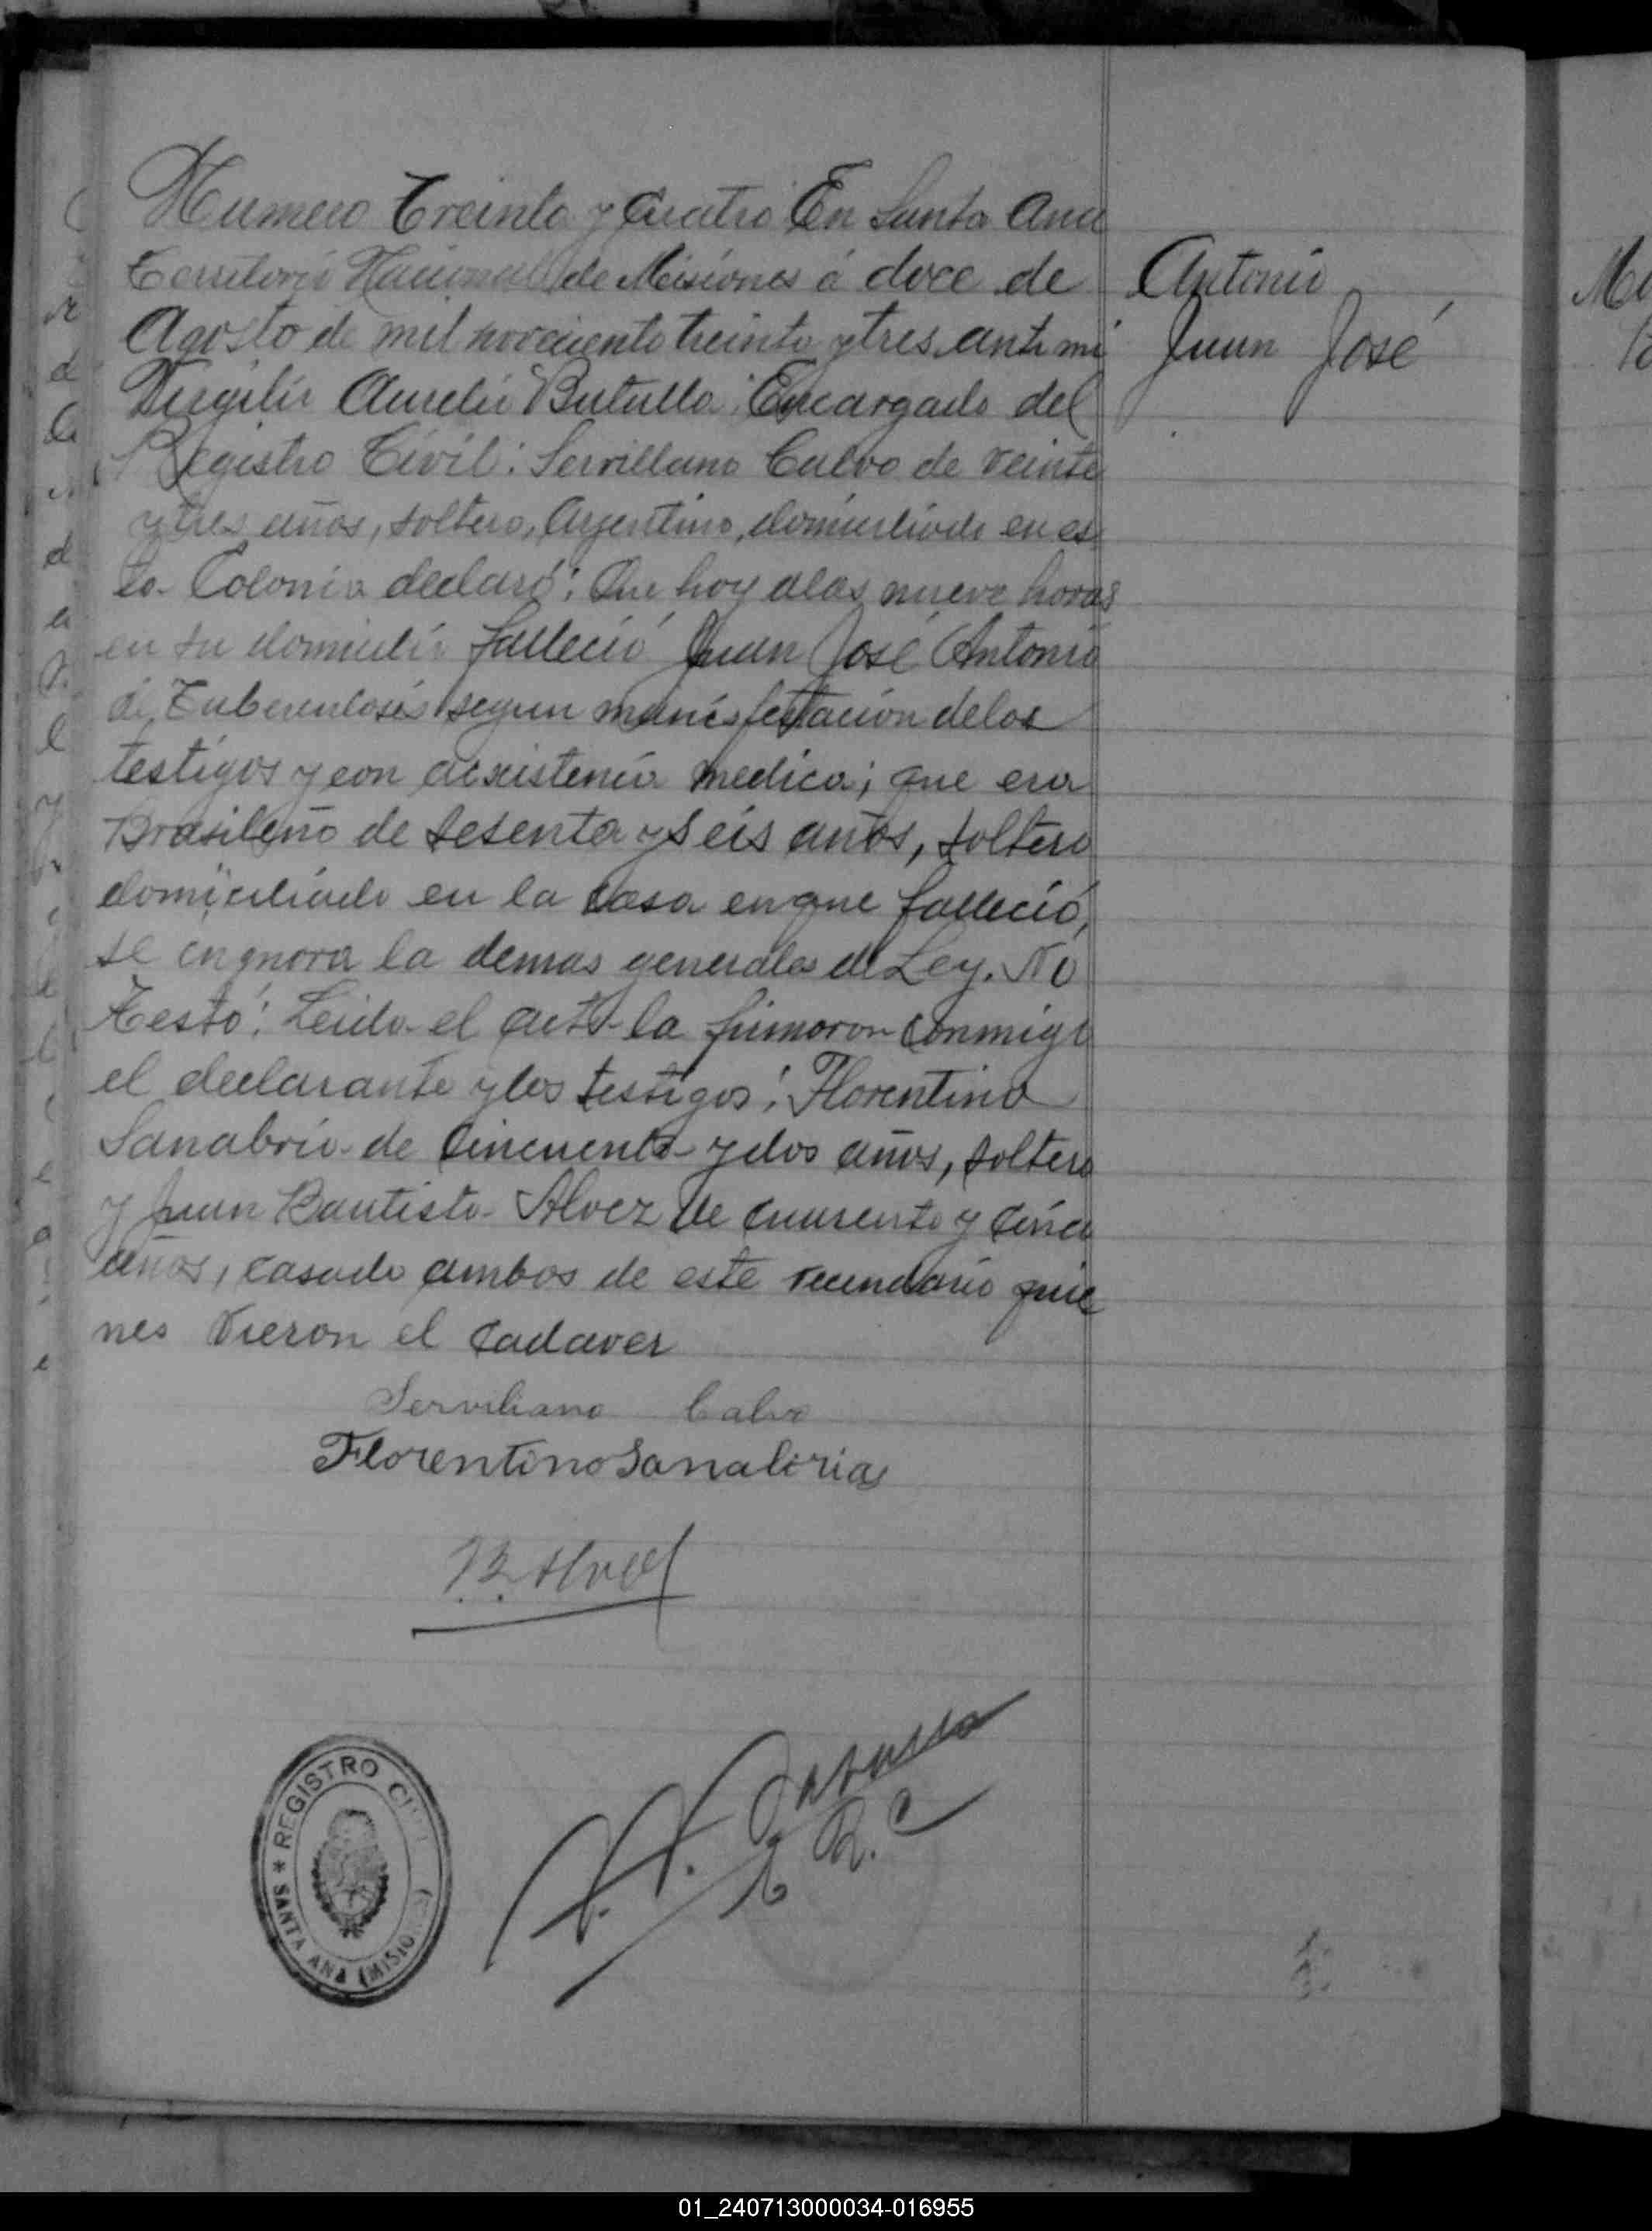 Numero Treinta y Cuatro En Santa Ana
Territorio Nacional de Misiones á doce de
Agosto de mil noveciento treinta y tres ante mi
Virgilio Aurelio Encargado del
Registro Civil: Servillano Calvo de veinte
y tres años, soltero, Argentino, domiciliado en es
ta Colonia declaró: Que hoy a las nueve horas
en su domicilio falleció Juan José Antonio
de Tuberculosis segun manisfestación de los
testigos y con medica; que era
Brasileño de sesenta y seis años, soltero
domiciliado en la casa en que falleció,
se ingnora la demas generales de Ley. No
Testó: Leida el acta la firmaron conmigo
el declarante y los testigos: Florentino
Sanabria de cincuenta y dos años, soltero
y Juan Bautista Alvez de cuarenta y cinco
años, casado ambos de este vecindario quie
nes vieron el cadaver
Antonio
Juan José
Serviliano Calvo
Florentino Sanabria
REGISTRO CIVIL
* SANTA ANA (MISIONES)
R. C
01_240713000034-016955